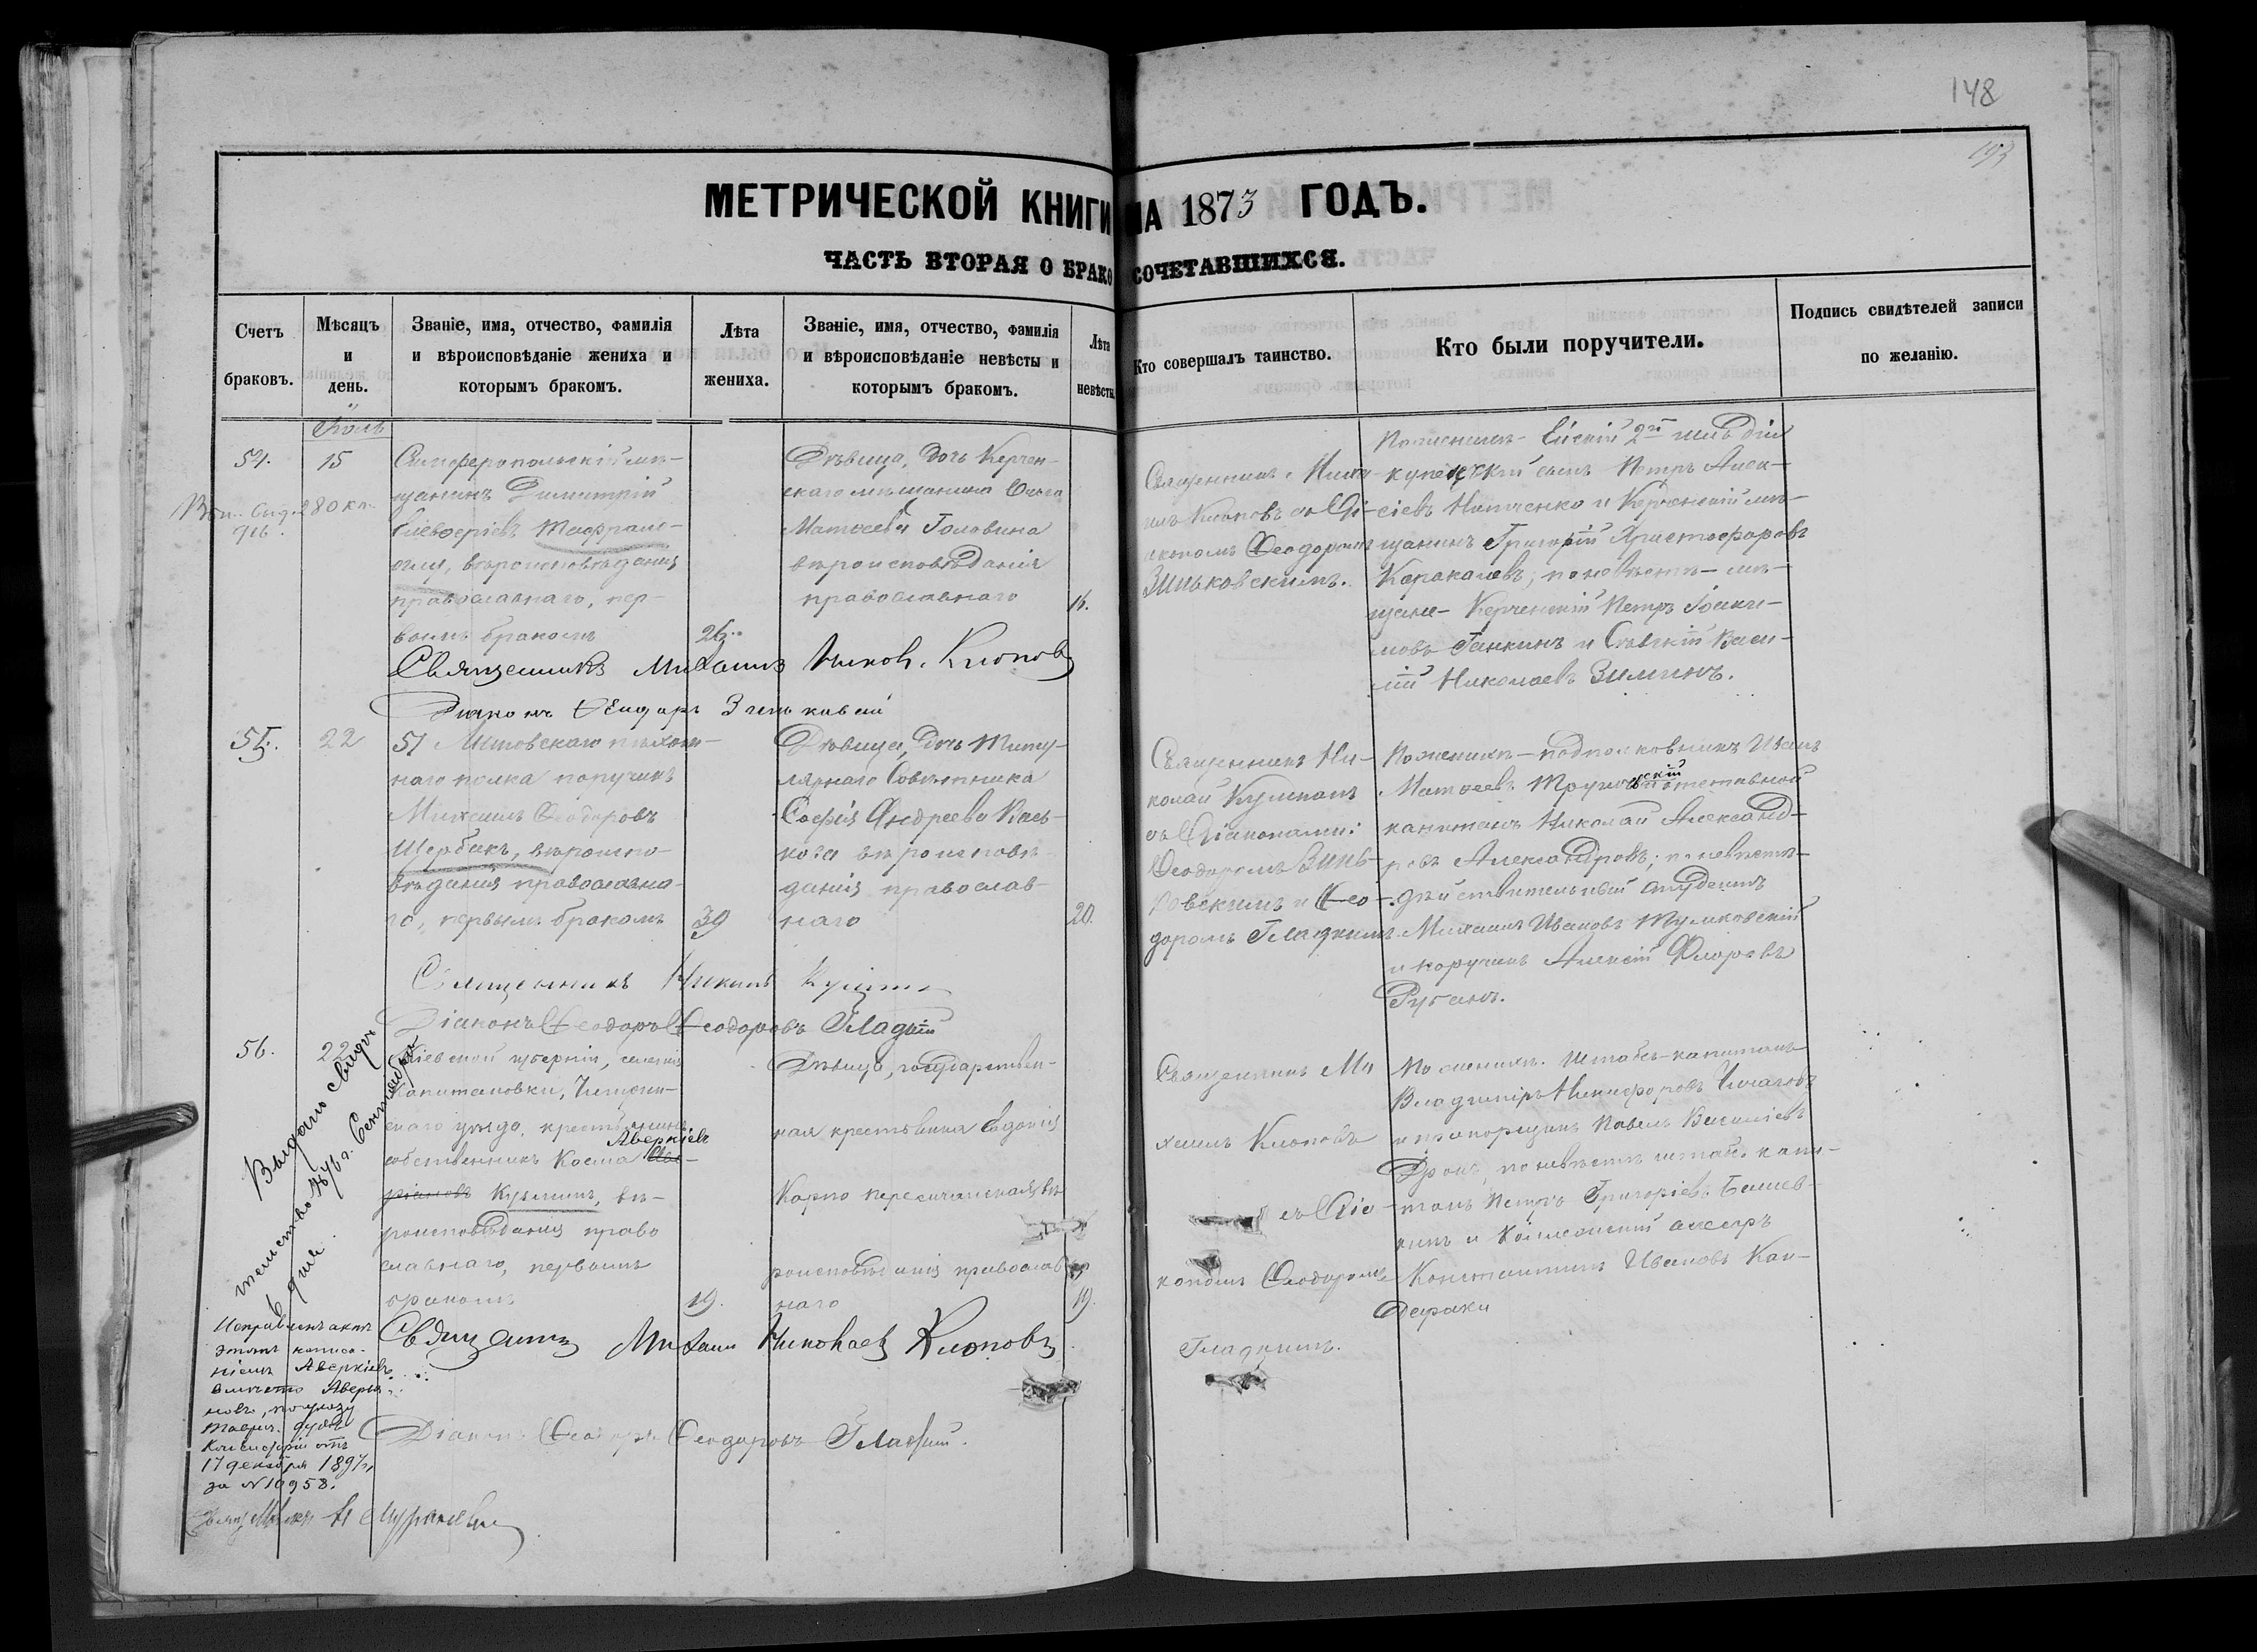 148
193
МЕТРИЧЕСКОЙ КНИГИ НА 1873 ГОДЪ.
ЧАСТЬ ВТОРАЯ О БРАКОСОЧЕТАВШИХСЯ.
Счетъ браковъ.
Мѣсяцъ и день.
Званіе, имя, отчество, фамилія и вѣроисповѣданіе жениха и которымъ бракомъ.
Лѣта жениха.
Званіе, имя, отчество, фамилія и вѣроисповѣданіе невѣсты и которымъ бракомъ.
Лѣта невѣсты
Кто совершалъ таинство.
Кто были поручители.
Подпись свидѣтелей записи по желанію.
54.
15
Симферопольскій мѣ-
щанинъ Димитрій
Елевѳеріевъ
оглу, вѣроисповѣданія
православнаго, пер-
вымъ бракомъ
26.
Дѣвица, дочь Керчен-
скаго мѣщанина Ольга
Матѳеева Головина
вѣроисповѣданія
православнаго
16.
Священникъ Миха-
илъ Клоповъ съ Ді-
акономъ Ѳеодоромъ
Зиньковскимъ.
По женихѣ - Ейскій 2й гильдіи
купеческій сынъ Петръ Алек-
сіевъ Нитченко и Керченскій мѣ-
щанинъ Григорій Христофоровъ
Каракашевъ; по невѣстѣ - мѣ-
щане - Керченскій Петръ Іоаки-
мовъ Ганкинъ и Сѣвскій Васи-
лій Николаевъ Зиминъ.
Священникъ Михаилъ Никол. Клоповъ
Діаконъ Ѳеодоръ Зиньковскій
916.
80 кп.
55.
22
51 Литовскаго пѣхот-
наго полка поручикъ
Михаилъ Ѳеодоровъ
Щербакъ, вѣроиспо-
вѣданія православна-
го, первымъ бракомъ
39
Дѣвица, дочь титу-
лярнаго Совѣтника
Софія Андреева Вась-
кова вѣроисповѣ-
данія православ-
наго
20.
Священникъ Ни-
колай Кушкинъ
съ Діаконами:
Ѳеодоромъ Зинь-
ковскимъ и Ѳео-
доромъ Гладкимъ.
По женихѣ - подполковникъ Иванъ
Матѳеевъ
капитанъ Николай Александ-
ровъ Александровъ; по невѣстѣ -
дѣйствительный студентъ
Михаилъ Ивановъ Тумковскій
и поручикъ Алексій Флоровъ
Рубанъ.
Священникъ
Діаконъ Ѳеодоръ Ѳеодоровъ Гладкій
56.
22
Кіевской губерніи, селенія
Капитановки, Чигрин-
скаго уѣзда, крестьянинъ
собственникъ Косма Аверкіевъ
Кузьминъ, вѣ-
роисповѣданія право
славнаго, первымъ
бракомъ
19.
Дѣвица, государствен-
ная крестьянка Евдокія
вѣ-
роисповѣданія православ
наго
19.
Священникъ Ми
хаилъ Клоповъ
съ Діа-
кономъ Ѳеодоромъ
Гладкимъ.
По женихѣ. Штабсъ-капитанъ
Владиміръ Никифоровъ Чичаговъ
и прапорщикъ Павелъ Василіевъ
по невѣстѣ штабсъ капи-
танъ Петръ Григоріевъ
и Коллежскій ассесоръ
Константинъ Ивановъ Кан-
дараки
Священникъ Михаилъ Николаевъ Клоповъ
Діаконъ Ѳеодоръ Ѳеодоровъ Гладкій.
Выдано свидѣ
тельство 1876 г. Сентября
дня.
Исправленъ актъ
этотъ написа-
ніемъ Аверкіевъ
вмѣсто Аверья-
новъ, по указу
Таврич. духов.
Консисторіи отъ
17 декабря 1897 г,
за № 10958.